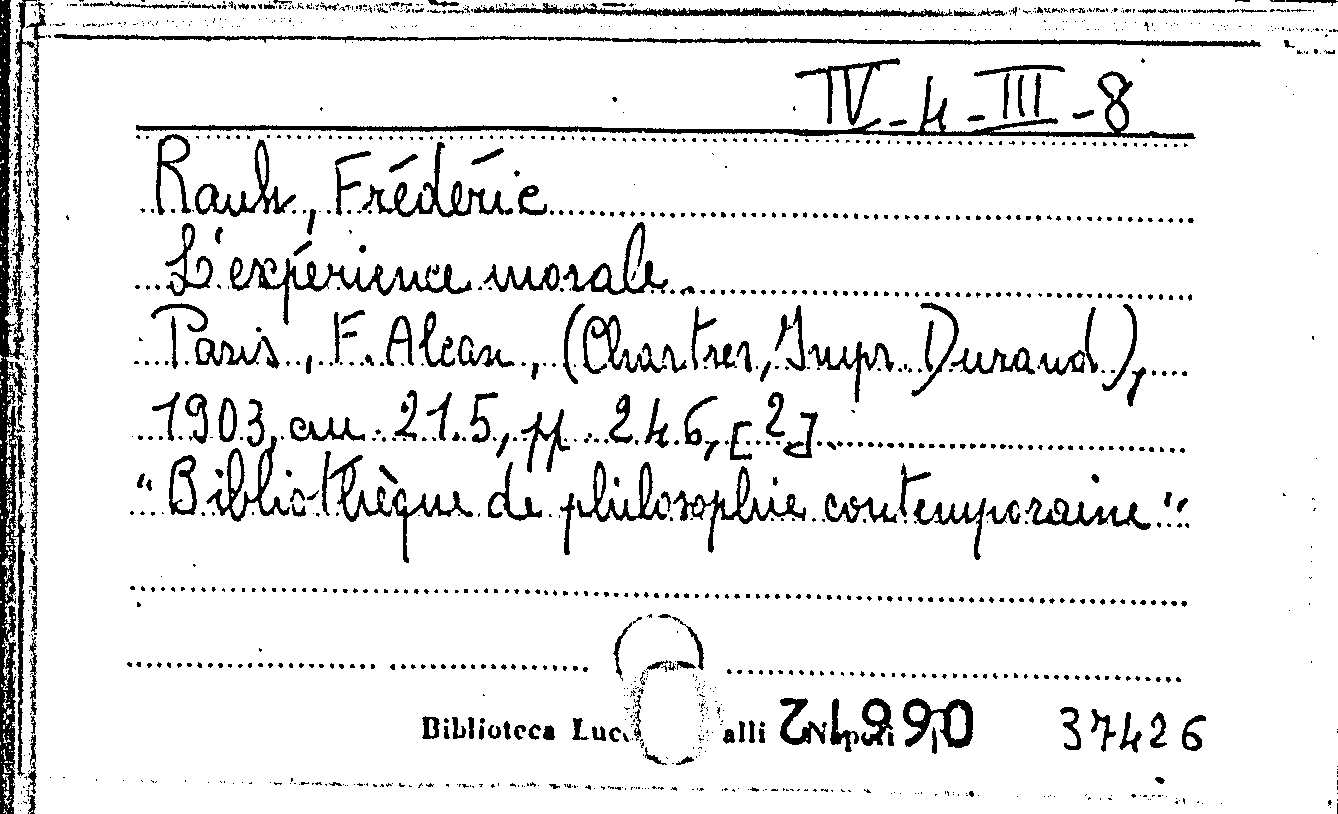 IV-4-III-8
Rauh, Frédéric
L'expérience morale.
Paris, F. Alcan, (Chartres, Impr. Durand),
1903, cm 21.5, pp 246, [2].
"Bibliothèque de philosophie contemporaine"
Biblioteca alli Napoli 37426